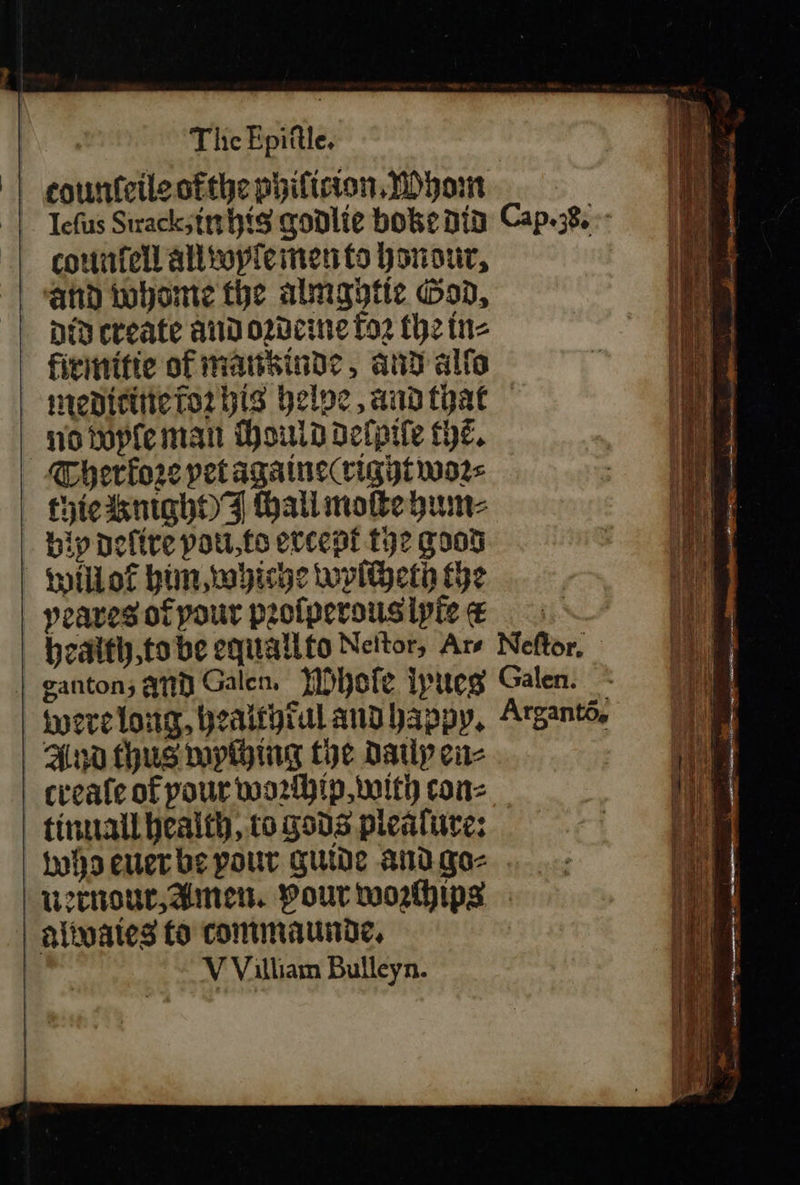 The Epiſtle.
counſeile of the phiſicion. Whom
Ieſus Sirack, in his godlie boke did Cap.38.
counſell all wyſe men to honour,
and whome the almghtie God,
did create and ordeine for the in-
firmitie of mankinde, and alſo
medicine for his helpe, and that
no wyſe man ſhould deſpiſe thē.
Therfore yet againe (right wor-
thie knight) I ſhall moſte hum-
bly deſire you, to except the good
will of him, whiche wyſſheth the
yeares of your proſperous lyfe &
health, to be equall to Neſtor, Ar- Neſtor.
ganton, and Galen. Whoſe lyues Galen.
were long, healthful and happy. Argantō.
And thus wyſhing the daily en-
creaſe of your worſhip, with con-
tinuall health, to gods pleaſure:
who euer be your guide and go-
uernour, Amen. Your worſhips
alwaies to commaunde.
VVilliam Bulleyn.